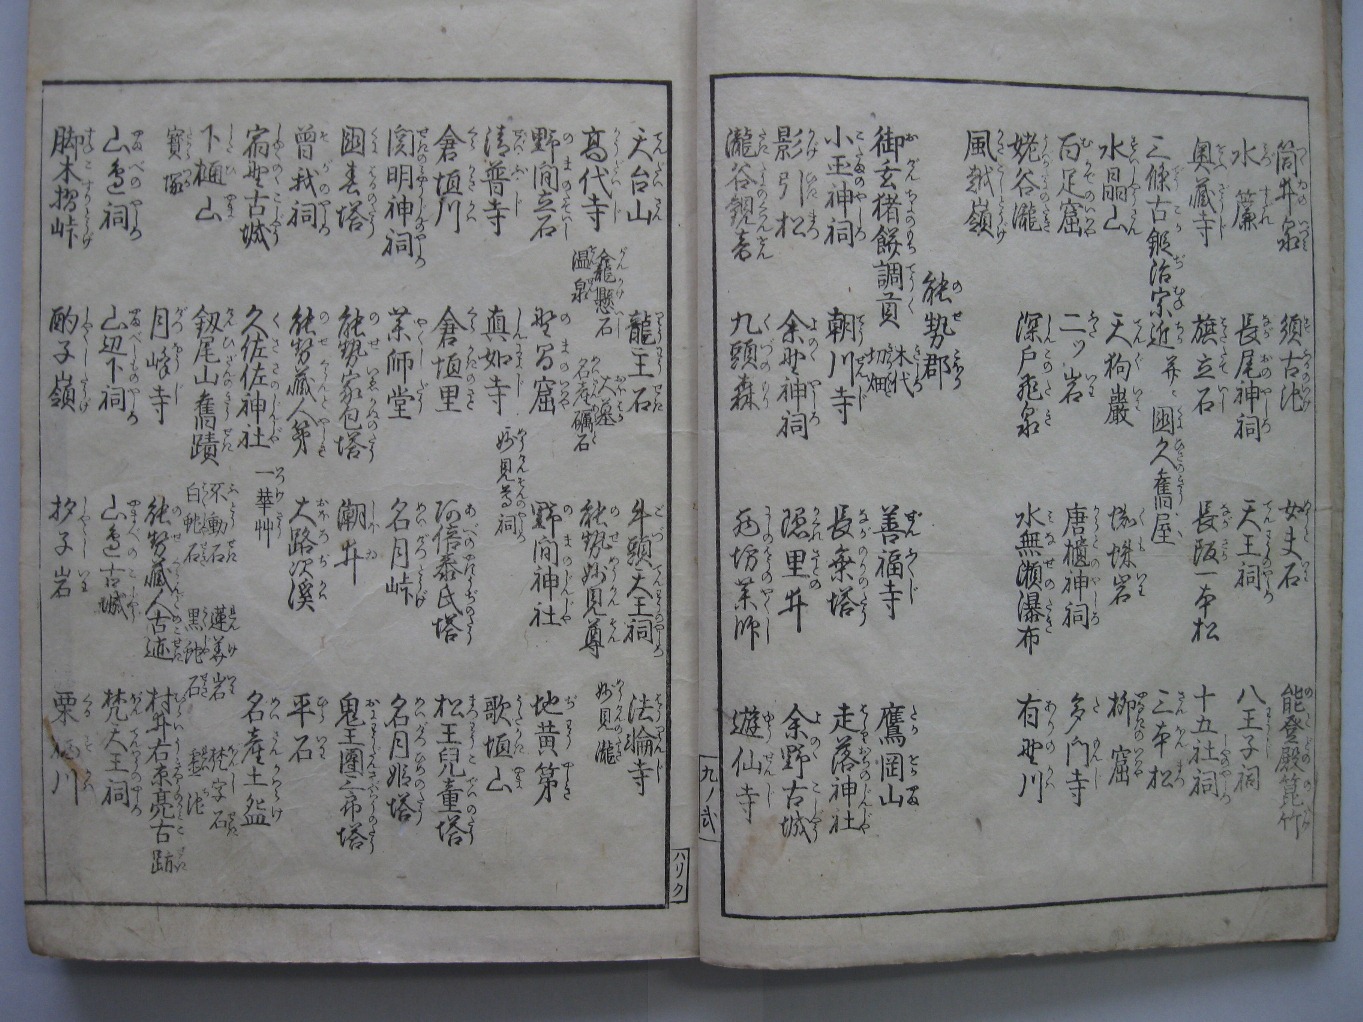 筒井泉 須古池 女夫石 能登殿箆竹
水簾 長尾神祠 天王祠 八王子祠
奥藏寺 旗立石 長阪一本松 十五社祠
三條古鍛冶宗近并ニ國久舊屋 三本松
水晶山 天狗巖 蜘蛛岩 柳窟
百足窟 二ッ岩 唐櫃神祠 多門寺
姥谷瀧 深戸飛泉 水無瀬瀑布 有野川
風越嶺
能勢郡
御玄猪餅調貢 木代 切畑 善福寺 鷹岡山
小玉神祠 朝川寺 長乗塔 走落神社
影引松 余野神祠 隠里井 余野古城
瀧谷観音 九頭森 西坊薬師 遊仙寺
九ノ弐
ハリク
天台山 龍王石 牛頭天王祠 法輪寺
籠懸石 温泉 大墓 名産礪石
高代寺 能勢妙見尊 妙見瀧
野間立石 野間窟 妙見尊祠 野間神社 地黄第
清普寺 真如寺 歌垣山
倉垣川 倉垣里 阿倍泰氏塔 松王兒童塔
関明神祠 薬師堂 名月峠 名月姫塔
國春塔 能勢家包塔 潮井 鬼王團三郎塔
曽我祠 能勢藏人第 大路次溪 平石
宿野古城 久佐佐神社 一華艸 名産土盆
下樋山 釼尾山舊蹟 不動石 白蛇石 蓮華岩 黒蛇石 梵字石
寳塚 月峰寺 能勢藏人古迹 村井右京亮古跡
山邊祠 山辺下祠 山邊古城 梵天王祠
脚木摺峠 酌子嶺 杓子岩 栗栖川